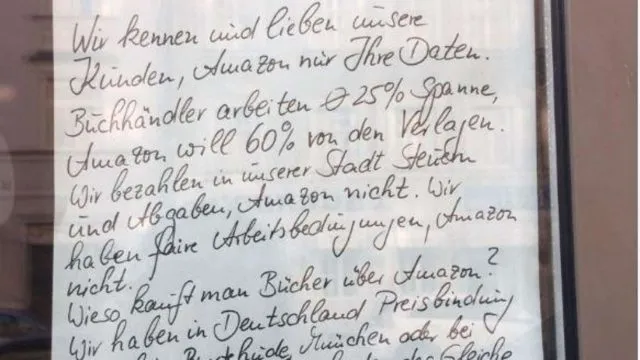 Wir kennen und lieben unsere
Kunden, Amazon nur Ihre Daten.
Buchhändler arbeiten Ø 25% Spanne,
Amazon will 60% von den Verlagen.
Wir bezahlen in unserer Stadt Steuern
und Abgaben, Amazon nicht. Wir
haben faire Arbeitsbedingungen, Amazon
nicht.
Wieso kauft man Bücher über Amazon?
Wir haben in Deutschland Preisbindung
Buxtehude, München oder bei
das Gleiche